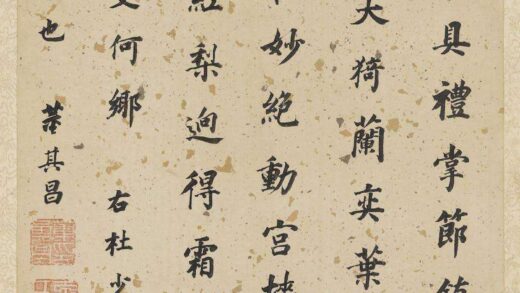 具禮掌節鎮
大猗蘭奕葉
妙絕動宮
紅梨逈得霜
更何鄉 右杜少
也 董其昌